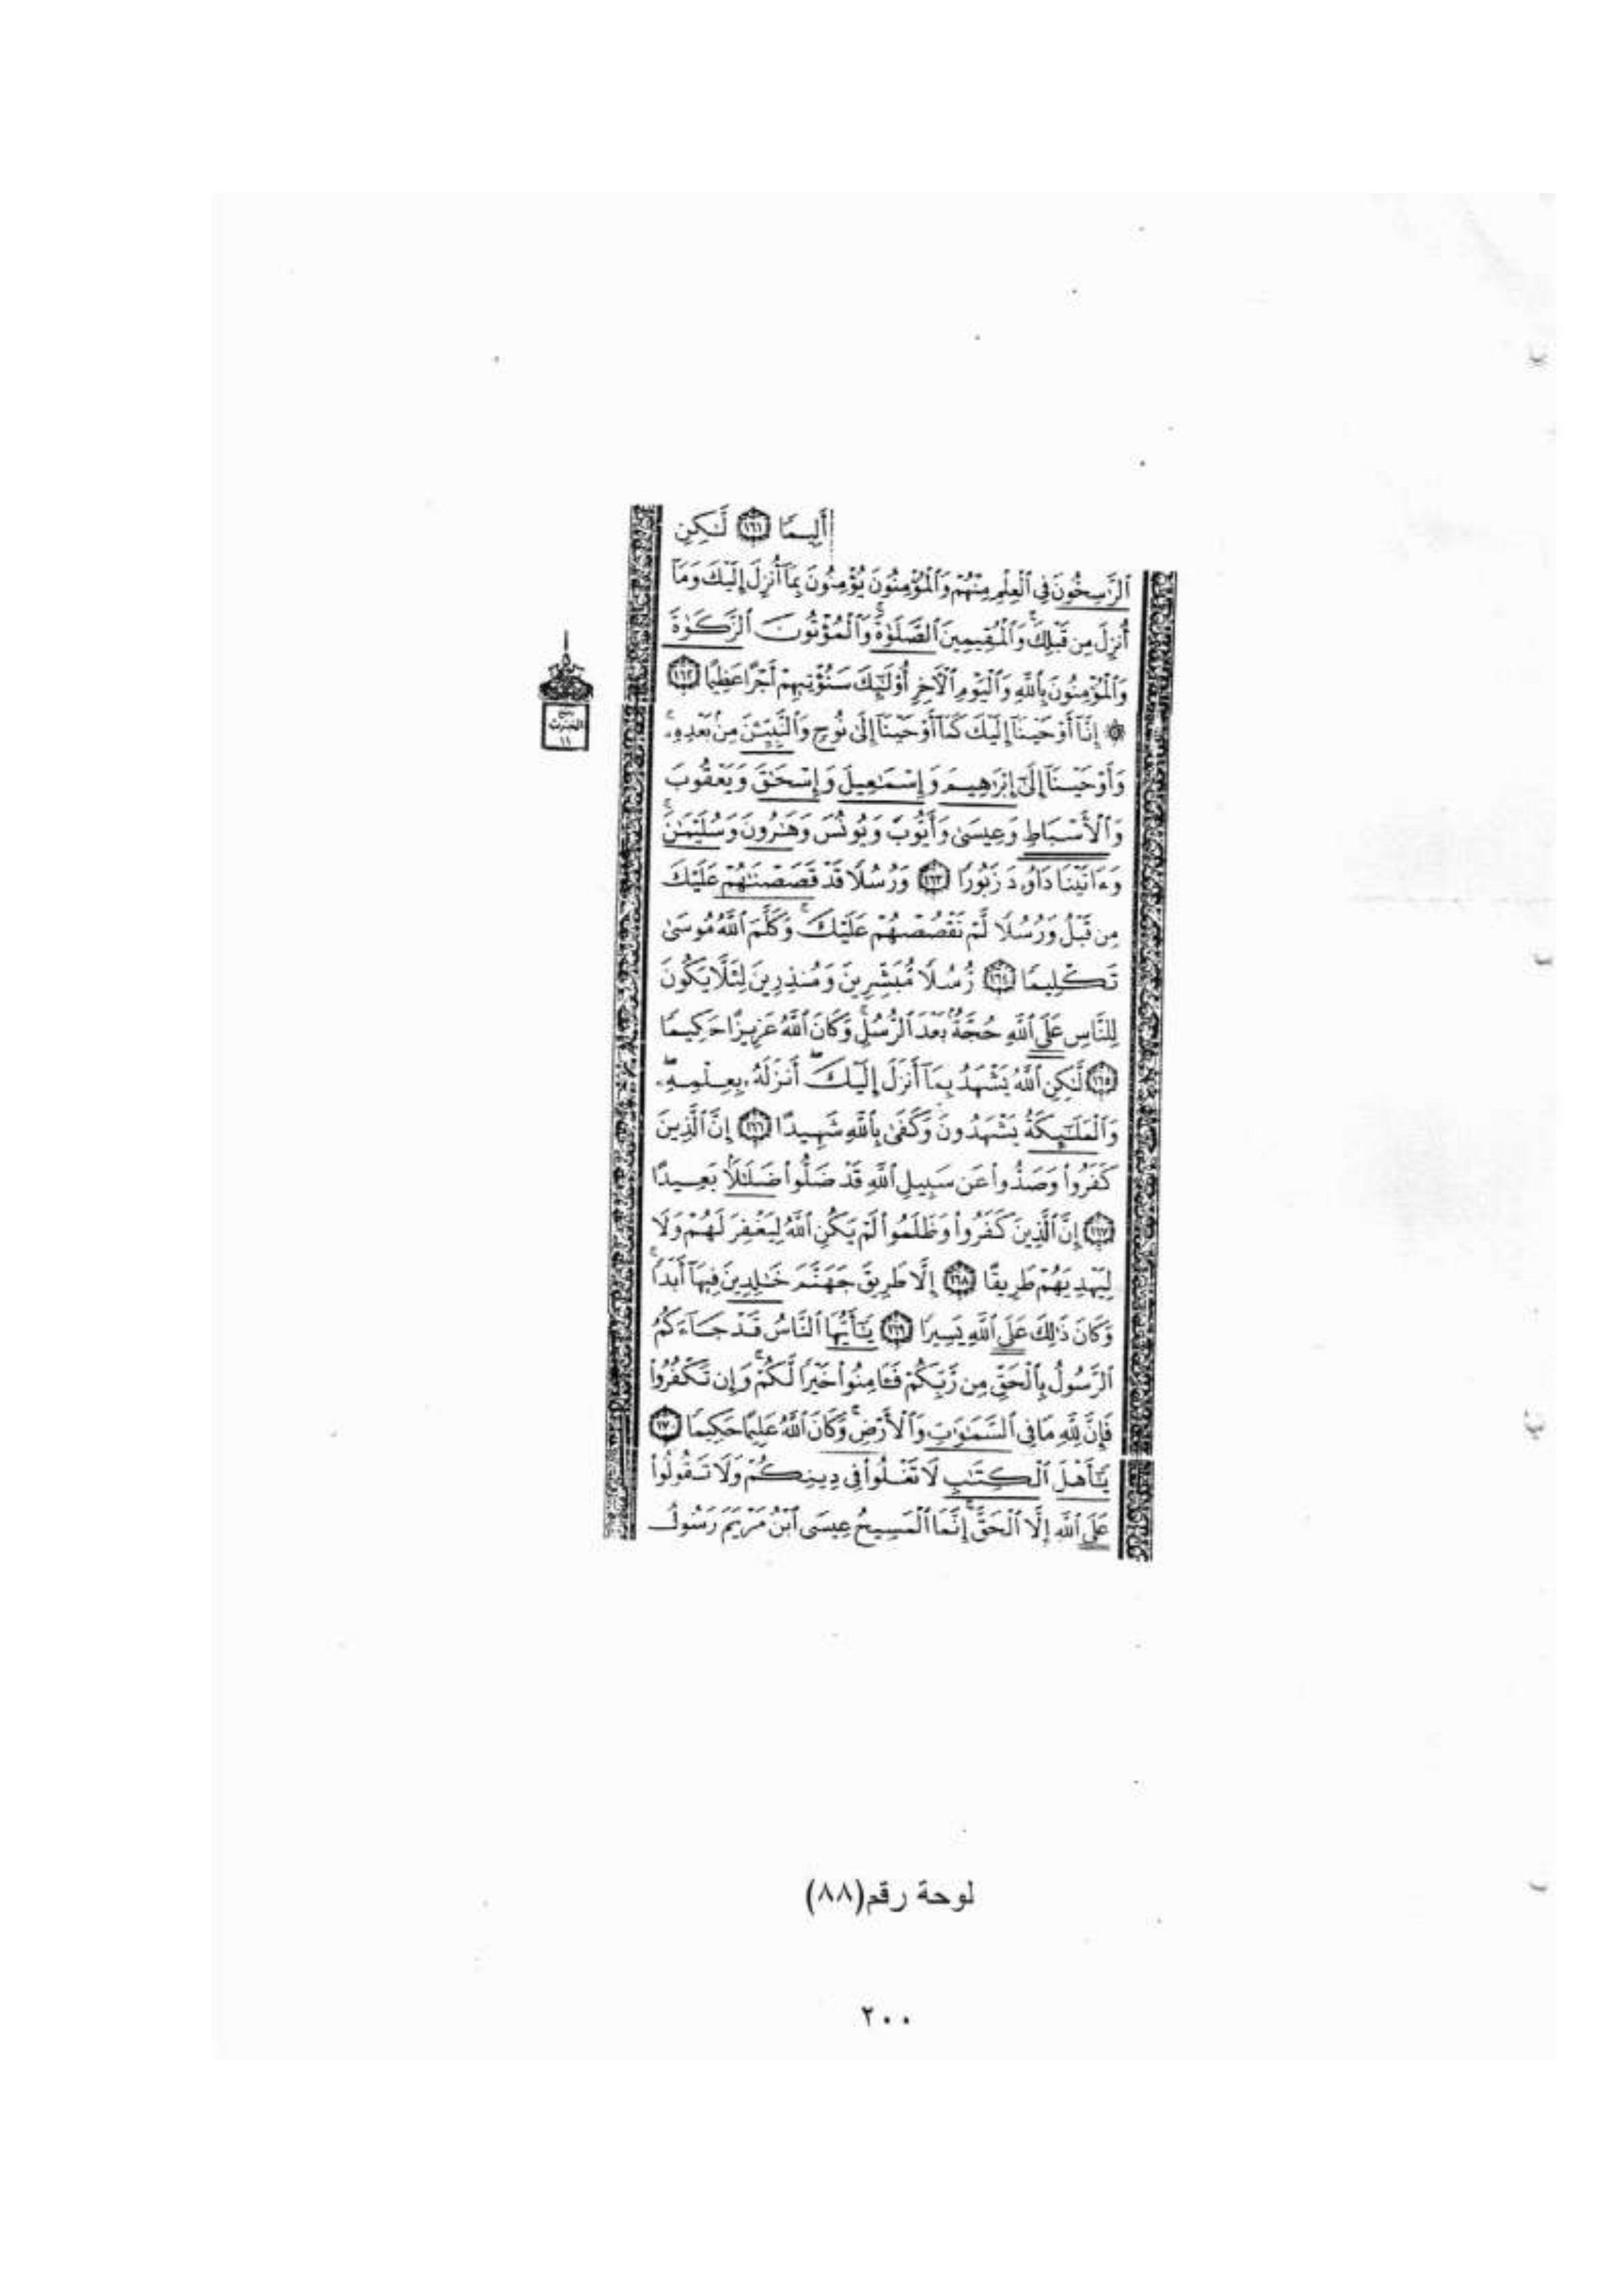 أَلِيمًا ١٦١ لَّٰكِنِ
ٱلرَّٰسِخُونَ فِى ٱلْعِلْمِ مِنْهُمْ وَٱلْمُؤْمِنُونَ يُؤْمِنُونَ بِمَآ أُنزِلَ إِلَيْكَ وَمَآ
أُنزِلَ مِن قَبْلِكَ ۚ وَٱلْمُقِيمِينَ ٱلصَّلَوٰةَ ۚ وَٱلْمُؤْتُونَ ٱلزَّكَوٰةَ
وَٱلْمُؤْمِنُونَ بِٱللَّهِ وَٱلْيَوْمِ ٱلْأَخِرِ أُو۟لَٰٓئِكَ سَنُؤْتِيهِمْ أَجْرًا عَظِيمًا ١٦٢
۞ إِنَّآ أَوْحَيْنَآ إِلَيْكَ كَمَآ أَوْحَيْنَآ إِلَىٰ نُوحٍ وَٱلنَّبِيِّـۧنَ مِنۢ بَعْدِهِۦ ۚ
وَأَوْحَيْنَآ إِلَىٰٓ إِبْرَٰهِيمَ وَإِسْمَٰعِيلَ وَإِسْحَٰقَ وَيَعْقُوبَ
وَٱلْأَسْبَاطِ وَعِيسَىٰ وَأَيُّوبَ وَيُونُسَ وَهَٰرُونَ وَسُلَيْمَٰنَ ۚ
وَءَاتَيْنَا دَاوُۥدَ زَبُورًا ١٦٣ وَرُسُلًا قَدْ قَصَصْنَٰهُمْ عَلَيْكَ
مِن قَبْلُ وَرُسُلًا لَّمْ نَقْصُصْهُمْ عَلَيْكَ ۚ وَكَلَّمَ ٱللَّهُ مُوسَىٰ
تَكْلِيمًا ١٦٤ رُّسُلًا مُّبَشِّرِينَ وَمُنذِرِينَ لِئَلَّا يَكُونَ
لِلنَّاسِ عَلَى ٱللَّهِ حُجَّةٌۢ بَعْدَ ٱلرُّسُلِ ۚ وَكَانَ ٱللَّهُ عَزِيزًا حَكِيمًا
١٦٥ لَّٰكِنِ ٱللَّهُ يَشْهَدُ بِمَآ أَنزَلَ إِلَيْكَ ۖ أَنزَلَهُۥ بِعِلْمِهِۦ ۖ
وَٱلْمَلَٰٓئِكَةُ يَشْهَدُونَ وَكَفَىٰ بِٱللَّهِ شَهِيدًا ١٦٦ إِنَّ ٱلَّذِينَ
كَفَرُوا۟ وَصَدُّوا۟ عَن سَبِيلِ ٱللَّهِ قَدْ ضَلُّوا۟ ضَلَٰلًۢا بَعِيدًا
١٦٧ إِنَّ ٱلَّذِينَ كَفَرُوا۟ وَظَلَمُوا۟ لَمْ يَكُنِ ٱللَّهُ لِيَغْفِرَ لَهُمْ وَلَا
لِيَهْدِيَهُمْ طَرِيقًا ١٦٨ إِلَّا طَرِيقَ جَهَنَّمَ خَٰلِدِينَ فِيهَآ أَبَدًا ۚ
وَكَانَ ذَٰلِكَ عَلَى ٱللَّهِ يَسِيرًا ١٦٩ يَٰٓأَيُّهَا ٱلنَّاسُ قَدْ جَآءَكُمُ
ٱلرَّسُولُ بِٱلْحَقِّ مِن رَّبِّكُمْ فَـَٔامِنُوا۟ خَيْرًا لَّكُمْ ۚ وَإِن تَكْفُرُوا۟
فَإِنَّ لِلَّهِ مَا فِى ٱلسَّمَٰوَٰتِ وَٱلْأَرْضِ ۚ وَكَانَ ٱللَّهُ عَلِيمًا حَكِيمًا ١٧٠
يَٰٓأَهْلَ ٱلْكِتَٰبِ لَا تَغْلُوا۟ فِى دِينِكُمْ وَلَا تَقُولُوا۟
عَلَى ٱللَّهِ إِلَّا ٱلْحَقَّ ۚ إِنَّمَا ٱلْمَسِيحُ عِيسَى ٱبْنُ مَرْيَمَ رَسُولُ
ربع
الحزب
١١
لوحة رقم(٨٨)
٢٠٠